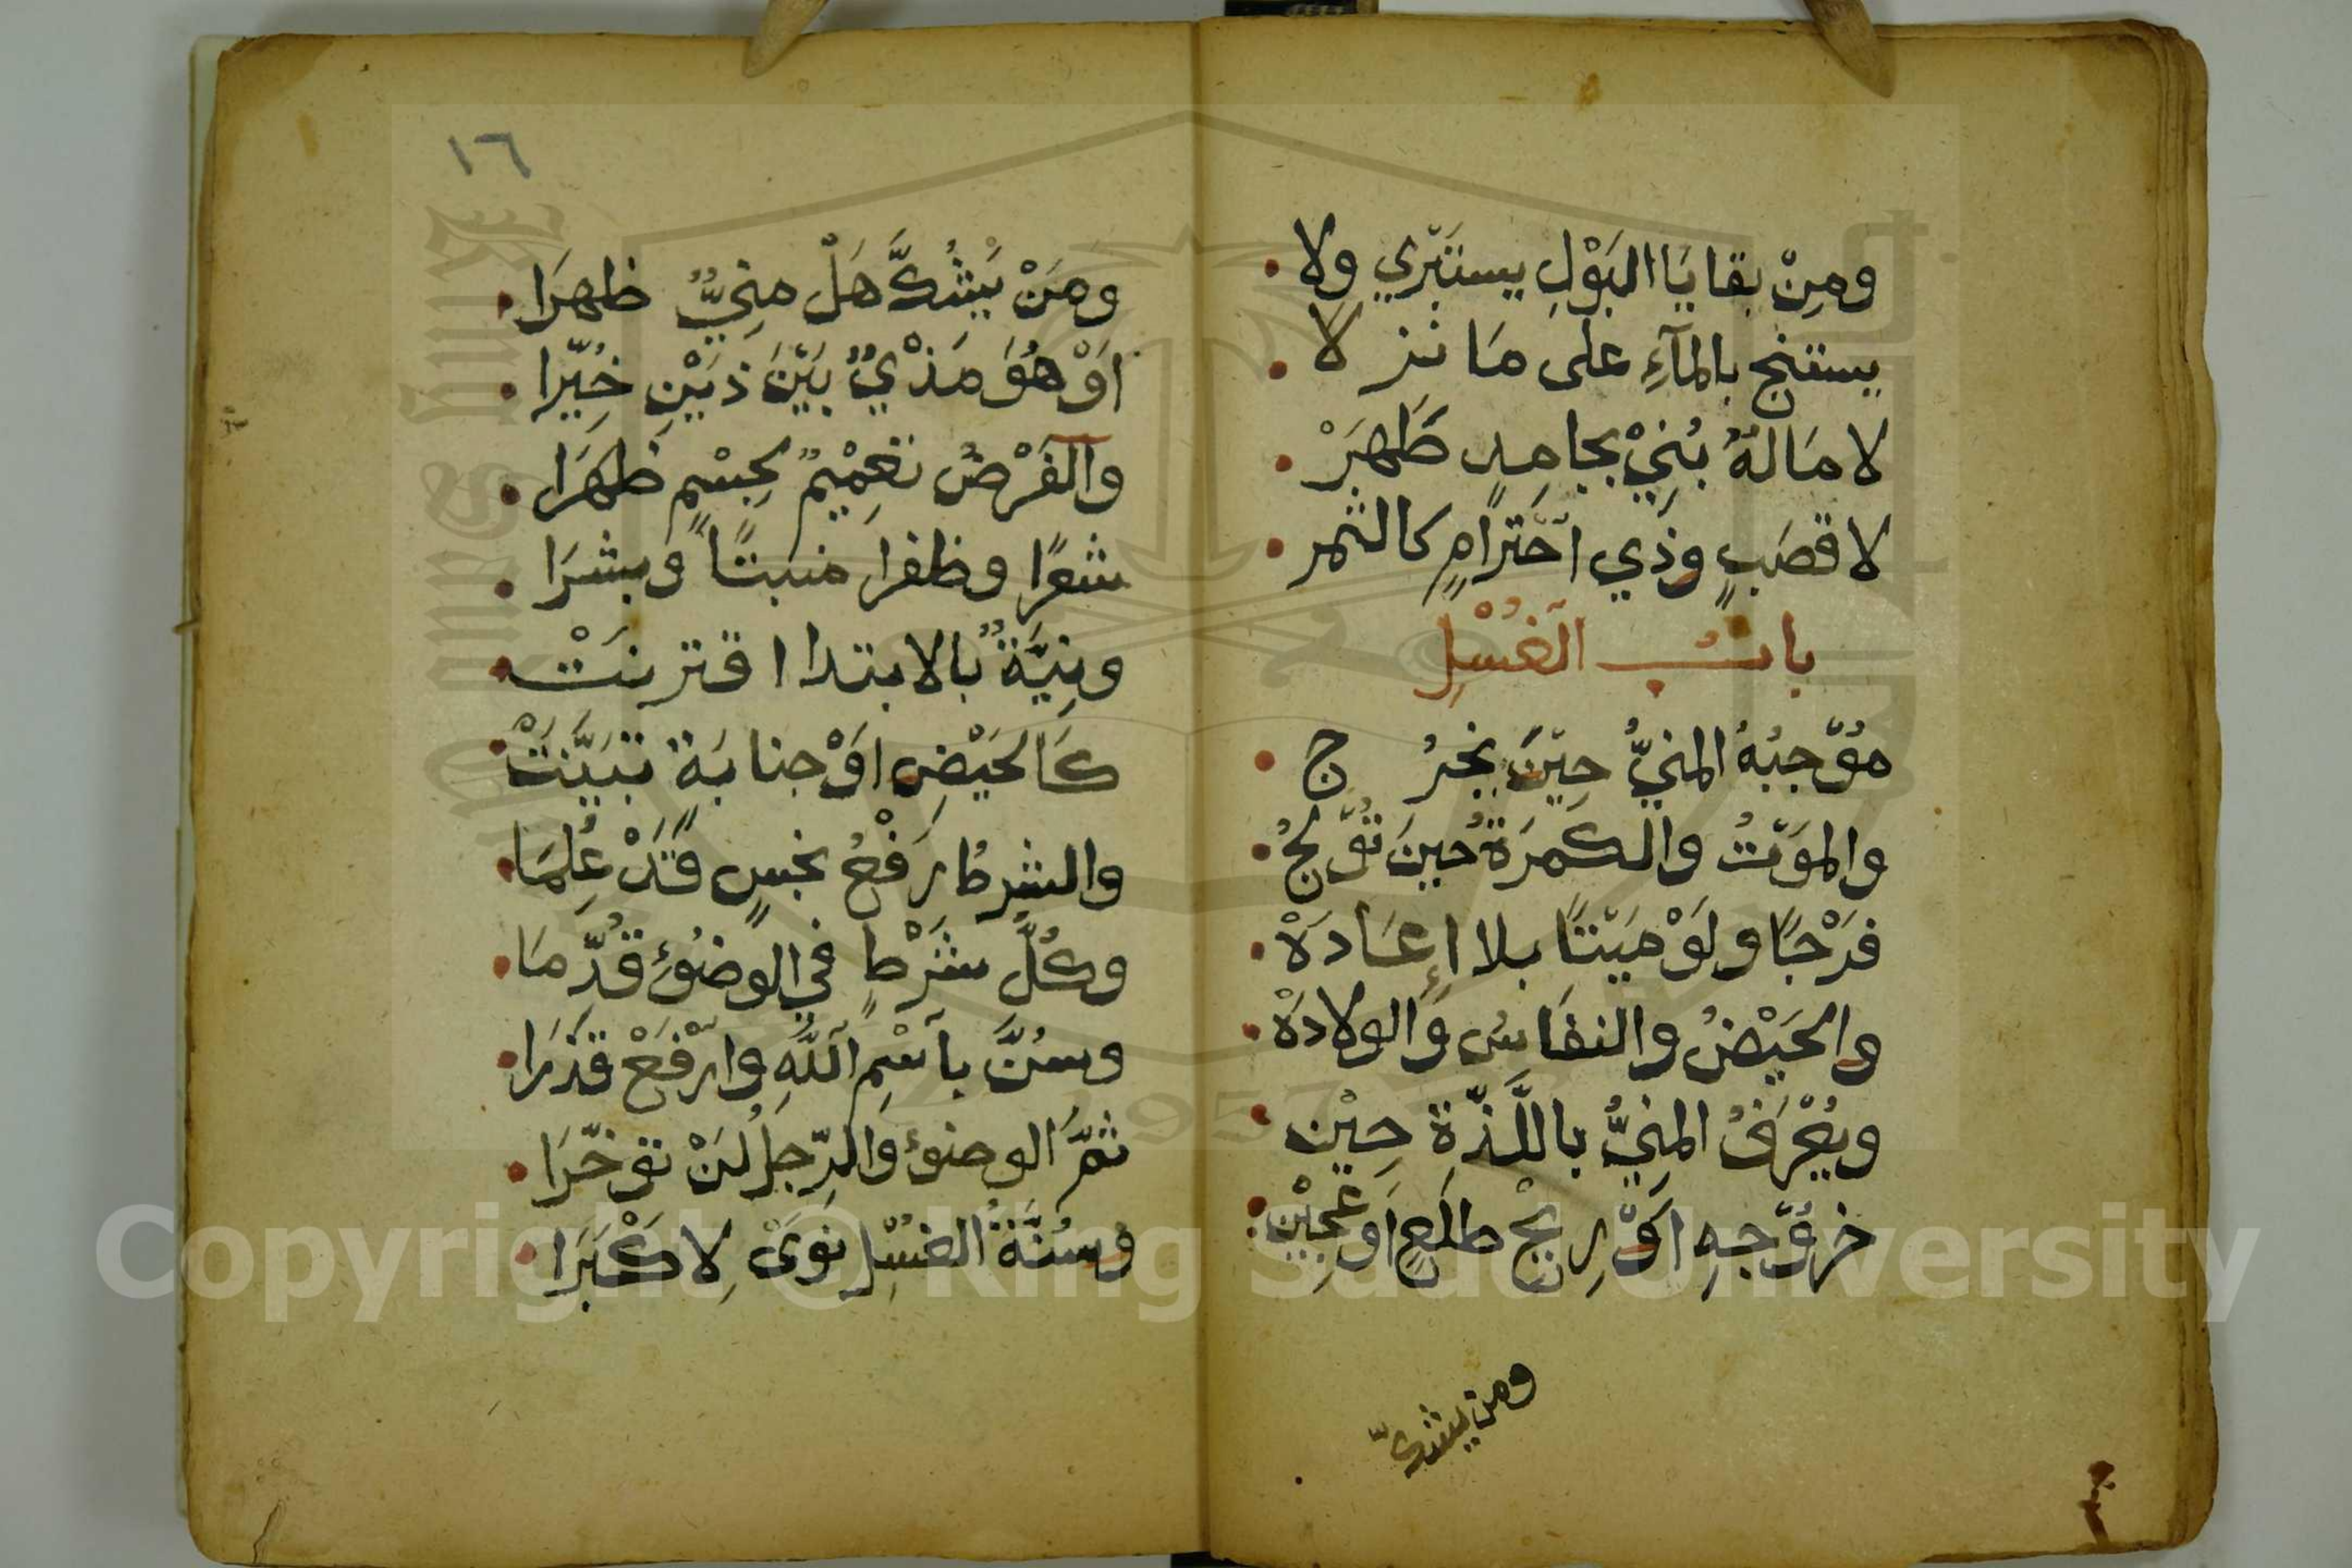 ومِنْ بقايَا البَوْلِ يستَبْرِي ولا
يستنج بالمآءِ على مَا نزلا
لا مَالَهُ بُنِيْ بجامِدٍ طَهَرْ
لا قصَبٍ وذِي احْتَرامٍ كالثمر
بابُ الغُسْلِ
مُوْجبُهُ المنيُّ حِيْنَ يخرُج
والموَتُ والكَمرَةُ حينَ تُوْلجُ
فرْجًا ولَوْ مَيْتًا بلا إِعَادَهْ
والحَيْضُ والنفَاسُ والولادَهْ
ويُعْرَفُ المنِيُّ باللَّذّةِ حِيْن
خرُوْجهِ اَوْ رِيْحِ طلَعٍ اَو عَجِيْن
ومن يشكّ
١٦
ومَنْ يَشُكَّ هَلْ منِيٌّ ظهرَا
اَوْ هُوَ مَذْيٌ بَيْنَ ذَيْنِ خُيِّرا
والفَرْضُ تعْمِيْمٌ لجِسْمٍ ظهَرَا
شعرًا وظفرا منبتًا وبشرَا
ونِيَّةٌ بالابتدا اقترنَتْ
كَالحَيْضِ اوْ جنابَةٍ تبَيَّنَتْ
والشرطُ رَفْعُ نجسٍ قَدْ عُلِمَا
وكُلُّ شَرْطٍ في الوضُوْءِ قُدِّمَا
وسُنَّ بآسْمِ اللَّهِ وارْفَعْ قذَرَا
ثمَّ الوضوءَ والرِّجلُ لَنْ توخّرَا
وسُنَّةُ الغسْلِ نوَىْ لِاكْبَرَا